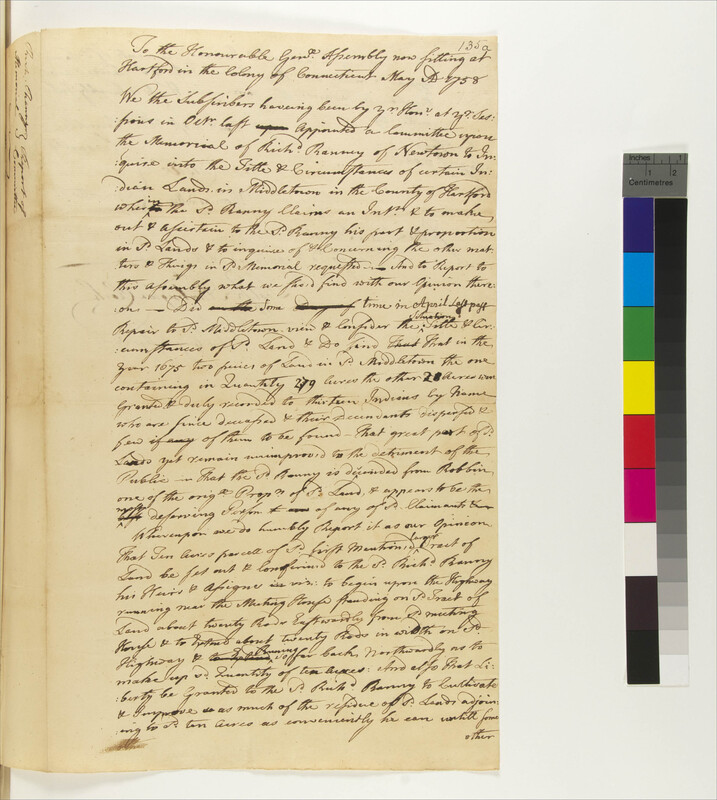 135a
To the Honourable Genll. Assembly now sitting at
Hartford in the Colony of Connecticut May AD 1758
We the Subscribers haveing been by yr. Honrs. at yr. Ses-
sions in Octr. last upon Appointed a Committee upon
the Memorical of Richd. Ranney of Newtown to In-
quire into the Title & Circumstances of certain In-
dian Lands in Middletown in the County of Hartford
wherein the Sd. Ranny Claims an Intrst. & to make
out & asertain to the Sd. Ranny his part & proportion
in Sd. Lands & to inquire of & Concerning the other mat-
ters & things in Sd. Memorial requested — And to Report to
this Assembly what we find with our Opinion there
on — Did on the Some Day of time in April Last past
Repair to Sd. Middletown view & Consider the Situation Title & Cir-
cumstances of Sd. Land & Do find That That in the
year 1675 two pieces of Land in Sd. Middletown the one
containing in Quantity 219 Acres the other Acres were
Granted & duly recorded to thirteen Indians by Name
who are since deceased & their Decendants dispersed &
few if any of them to be found — That great part of Sd.
Lands yet remain unimproved to the detriment of the
Public — That the Sd. Ranny is decended from Robbin
one of the origll. Proprs. of Sd. Land, & appears to be the
most deserving Person of any of Sd. Claimants
Whereupon we do humbly Report it as our Opinion
That Ten Acres parcell of Sd. first Mentioned larger Tract of
Land be set out & Confirmed to the Sd. Richd. Ranny
his Heirs & Assigns viz: to begin upon the Highway
running near the Meeting House standing on Sd. Tract of
Land about twenty Rods Eastwardly from Sd. meeting
House & to Extend about twenty Rods in width on Sd.
Highway & Running so far back Northwardly as to
make up Sd. Quantity of ten Acres: And also that Li-
berty be Granted to the Sd. Richd. Ranny to Cultivate
& Improve as much of the residue of Sd. Lands adjoin-
ing to Sd. ten Acres as conveniently he can untill some
other
Report of
Committee
Inches
1
1
2
Centimetres